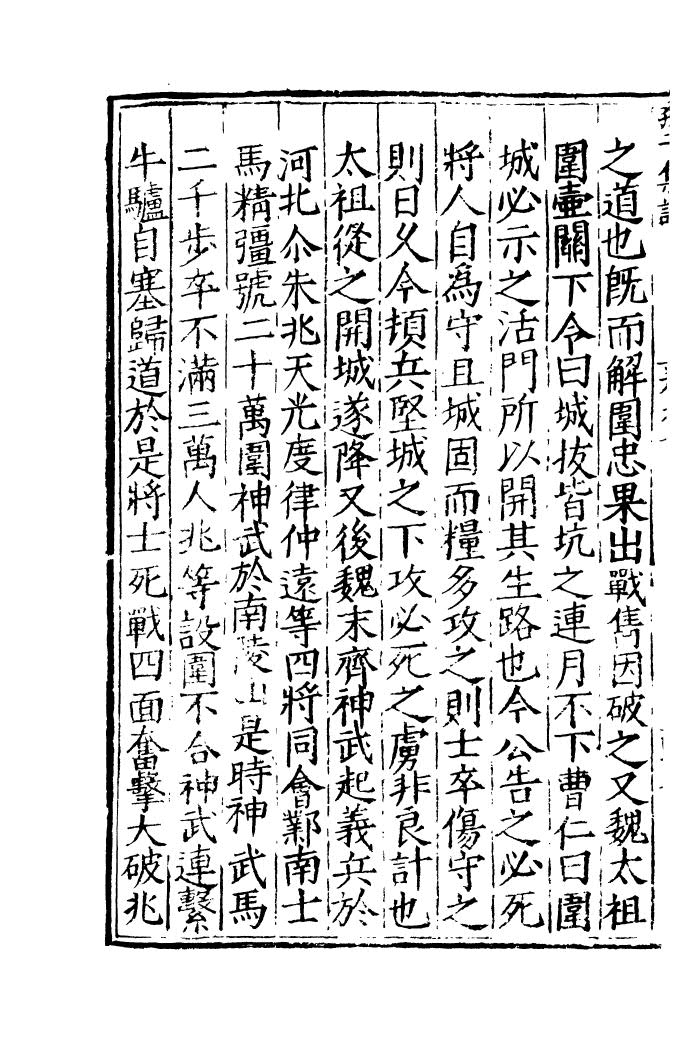 之道也既而解圍忠果出戰雋因破之又魏太祖
圍壷關下令曰城拔皆坑之連月不下曹仁曰圍
城必示之活門所以開其生路也今公告之必死
將人自爲守且城固而糧多攻之則士卒傷守之
則日乆今頓兵堅城之下攻必死之虜非良計也
太祖從之開城遂降又後魏末齊神武起義兵於
河北尒朱兆天光度律仲遠等四將同會鄴南士
馬精彊號二十萬圍神武於南陵山是時神武馬
二千步卒不滿三萬人兆等設圍不合神武連繫
牛驢自塞歸道於是將士死戰四面奮擊大破兆